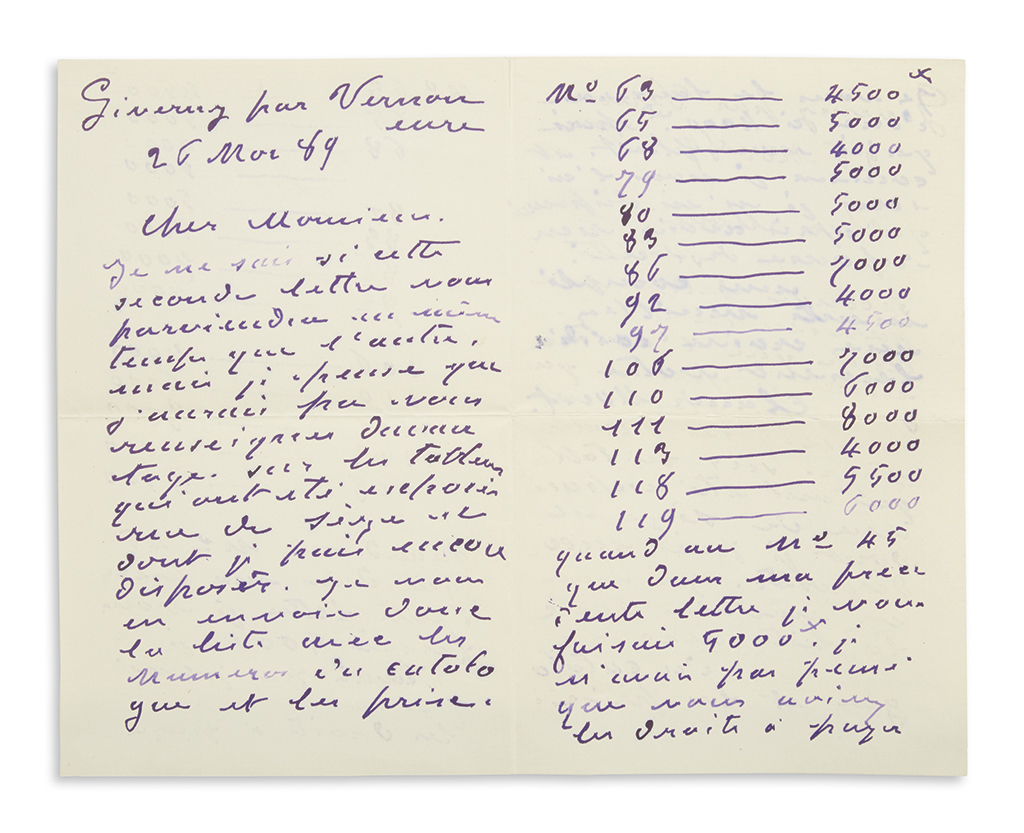 Giverny par Vernon
eure
26 Nov 89
Cher Monsieur.
Je ne sais si cette
seconde lettre vous
parviendra en même
temps que l'autre,
mais je pense que
j'aurais pu vous
renseigner davan
tage sur les tableaux
qui ont été exposés
rue de Sèze et
dont je puis encore
disposer. Je vous
en envoie donc
la liste avec les
Numeros du catalo
gue et les prix.
No 63 — 4500 f
65 — 5000
68 — 4000
79 — 5000
80 — 5000
83 — 5000
86 — 7000
92 — 4000
97 — 4500
106 — 7000
110 — 6000
111 — 8000
113 — 4000
118 — 5500
119 — 6000
quand au No 45
que dans ma précé
dente lettre je vous
faisais 9000 f. je
n'avais pas pensé
que vous aviez
les droits à payer